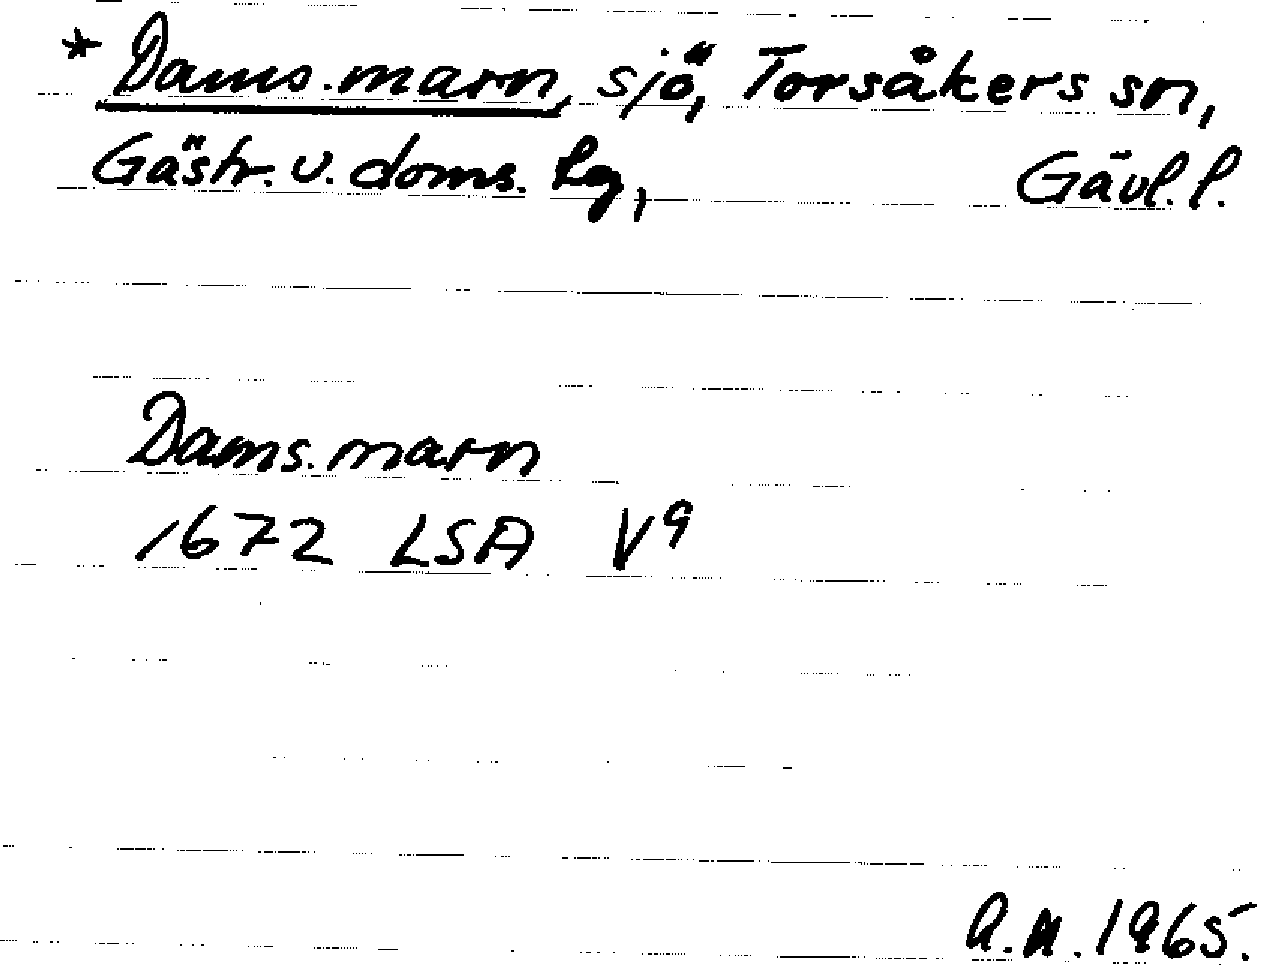 * Dams.marn, sjö, Torsåkers sn,
Gästr. v. doms. hg, Gävl. l.
Dams.marn
1672 LSA V9
A.N. 1965.